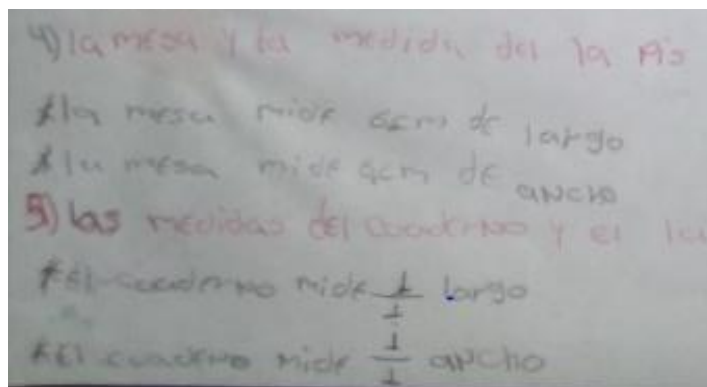 4) la mesa y la medida del la
*la mesa mide 6cm de largo
*la mesa mide 4cm de ancho
5) las medidas del cuaderno y el
*El cuaderno mide 1/1 largo
*El cuaderno mide 1/1 ancho